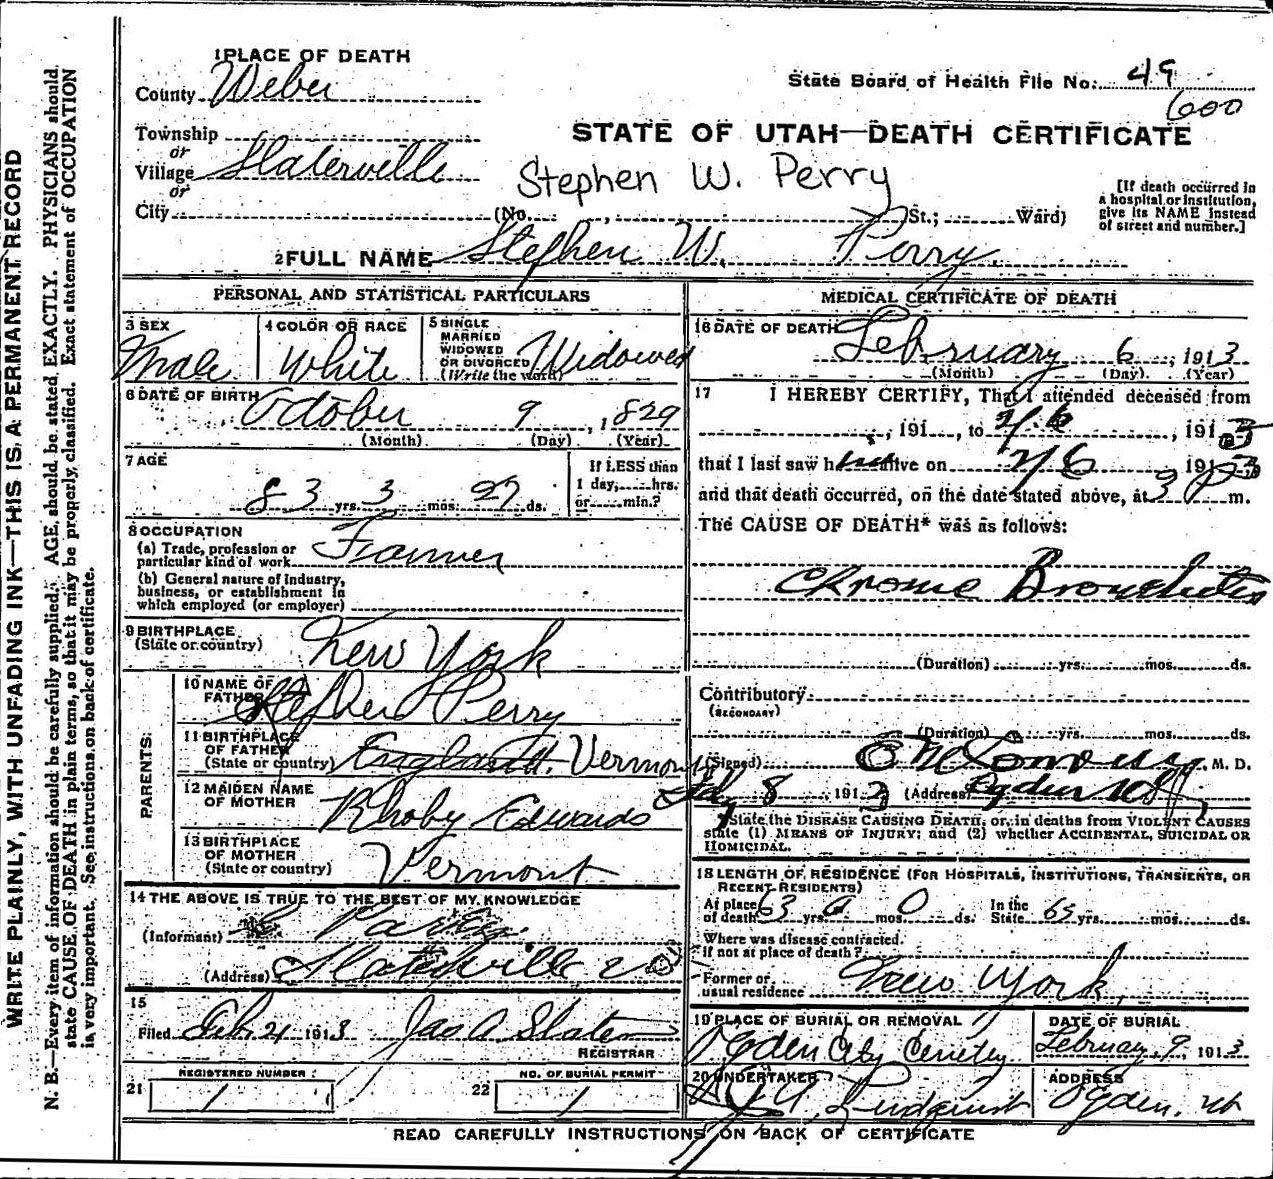 WRITE PLAINLY, WITH UNFADING INK—THIS IS A PERMANENT RECORD
N. B.—Every item of information should be carefully supplied. AGE should be stated EXACTLY. PHYSICIANS should
state CAUSE OF DEATH in plain terms, so that it may be properly classified. Exact statement of OCCUPATION
is very important. See instructions on back of certificate.
1 PLACE OF DEATH
County Weber
State Board of Health File No. 49
600
Township
or
STATE OF UTAH—DEATH CERTIFICATE
Village Slaterville
or
Stephen W. Perry
City (No. , St.; Ward)
[If death occurred in
a hospital or institution,
give its NAME instead
of street and number.]
2 FULL NAME Stephen W. Perry
PERSONAL AND STATISTICAL PARTICULARS
3 SEX
Male
4 COLOR OR RACE
White
5 SINGLE
MARRIED
WIDOWED
OR DIVORCED
(Write the word)
Widowed
6 DATE OF BIRTH October 9, 1829
(Month) (Day) (Year)
7 AGE
83 yrs. 3 mos. 27 ds.
If LESS than
1 day, hrs.
or min.?
8 OCCUPATION
(a) Trade, profession or
particular kind of work Farmer
(b) General nature of industry,
business, or establishment in
which employed (or employer)
9 BIRTHPLACE
(State or country) New York
PARENTS
10 NAME OF
FATHER Stephen Perry
11 BIRTHPLACE
OF FATHER
(State or country) England Vermont
12 MAIDEN NAME
OF MOTHER Rhoby Edwards
13 BIRTHPLACE
OF MOTHER
(State or country) Vermont
14 THE ABOVE IS TRUE TO THE BEST OF MY KNOWLEDGE
(Informant)
(Address) Slaterville
15
Filed Feb 21 1913 Jas A Slater
REGISTRAR
21 REGISTERED NUMBER
1
22 NO. OF BURIAL PERMIT
1
MEDICAL CERTIFICATE OF DEATH
16 DATE OF DEATH
February 6, 1913
(Month) (Day) (Year)
17 I HEREBY CERTIFY, That I attended deceased from
, 191 , to 2/6, 1913
that I last saw h alive on 2/6 1913
and that death occurred, on the date stated above, at 3 P m.
The CAUSE OF DEATH* was as follows:
Chronic Bronchitis
(Duration) yrs. mos. ds.
Contributory
(SECONDARY)
(Duration) yrs. mos. ds.
(Signed) , M. D.
8 1913 (Address) Ogden
*State the DISEASE CAUSING DEATH, or, in deaths from VIOLENT CAUSES
state (1) MEANS OF INJURY; and (2) whether ACCIDENTAL, SUICIDAL OR
HOMICIDAL.
18 LENGTH OF RESIDENCE (FOR HOSPITALS, INSTITUTIONS, TRANSIENTS, OR
RECENT RESIDENTS)
At place
of death 63 yrs. 0 mos. 0 ds.
In the
State 63 yrs. mos. ds.
Where was disease contracted.
if not at place of death?
Former or
usual residence New York
19 PLACE OF BURIAL OR REMOVAL
Ogden City Cemetery
DATE OF BURIAL
February 9, 1913
20 UNDERTAKER
Lindquist
ADDRESS
Ogden, Ut
READ CAREFULLY INSTRUCTIONS ON BACK OF CERTIFICATE